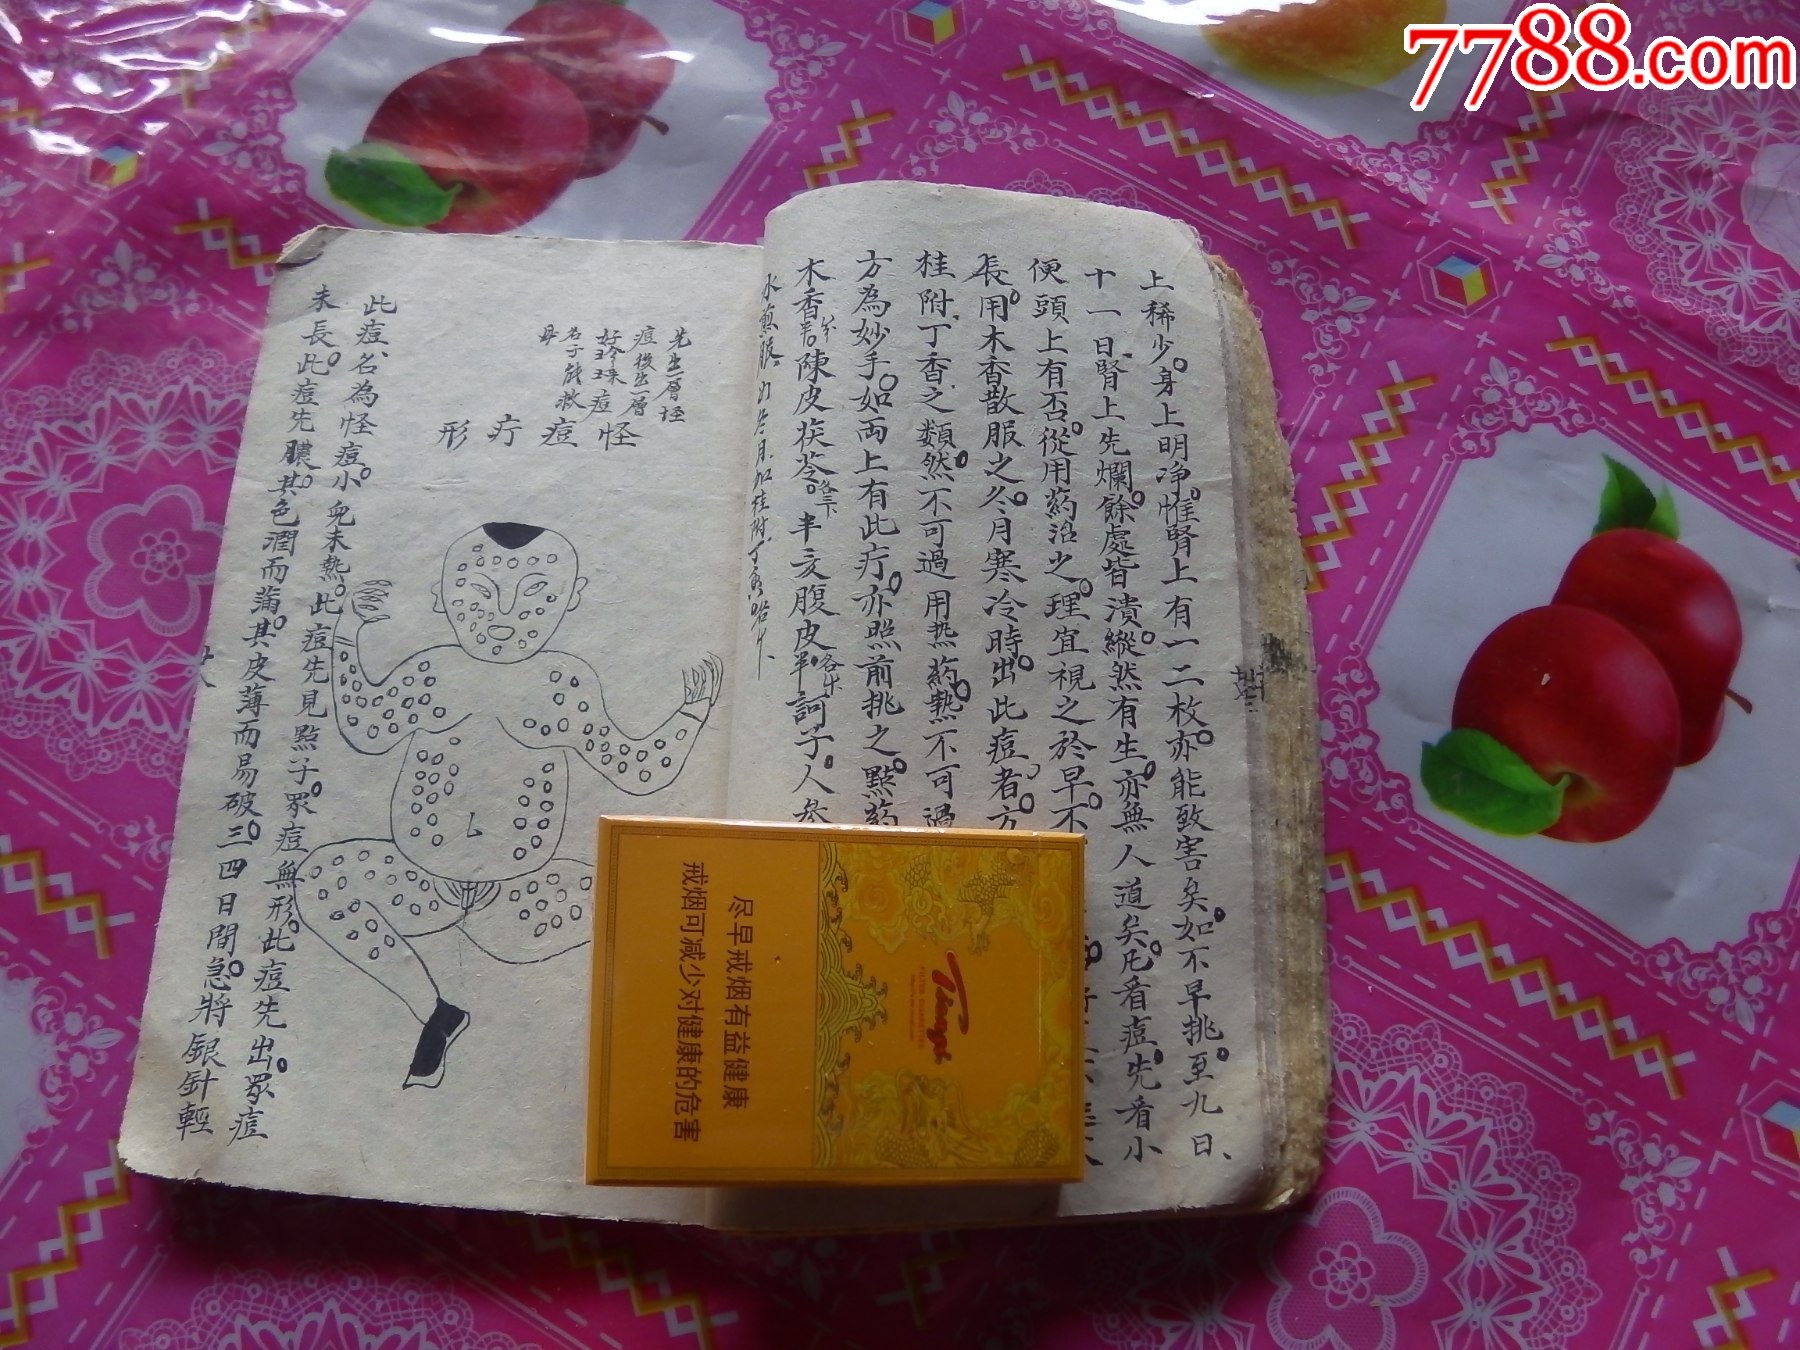 7788.com
上稀少。身上明净。惟腎上有一二枚。亦能致害矣。如不早挑。至九日、
十一日。腎上先爛。餘處皆潰。縱然有生。亦無人道矣。凡看痘。先看小
便頭上有否。從用葯治之。理宜視之於早。不
長。用木香散服之。冬月寒冷時。出此痘者。方
桂附、丁香之類。然不可過用热葯。熱不可過
方為妙手。如両上有此疔。亦照前挑之。點葯
木香 陳皮 茯苓 半夏 腹皮 訶子 人參
水煎服
形疔痘怪
先出一層怪
痘後出一層
好珍珠痘
名子能救
母
此痘、名為怪痘。小兒未熱。此痘先見點子。眾痘無形。此痘先出。眾痘
未長。此痘先膿。其色潤而蒲。其皮薄而易破。三四日間。急將銀針輕
尽早戒烟有益健康
戒烟可减少对健康的危害